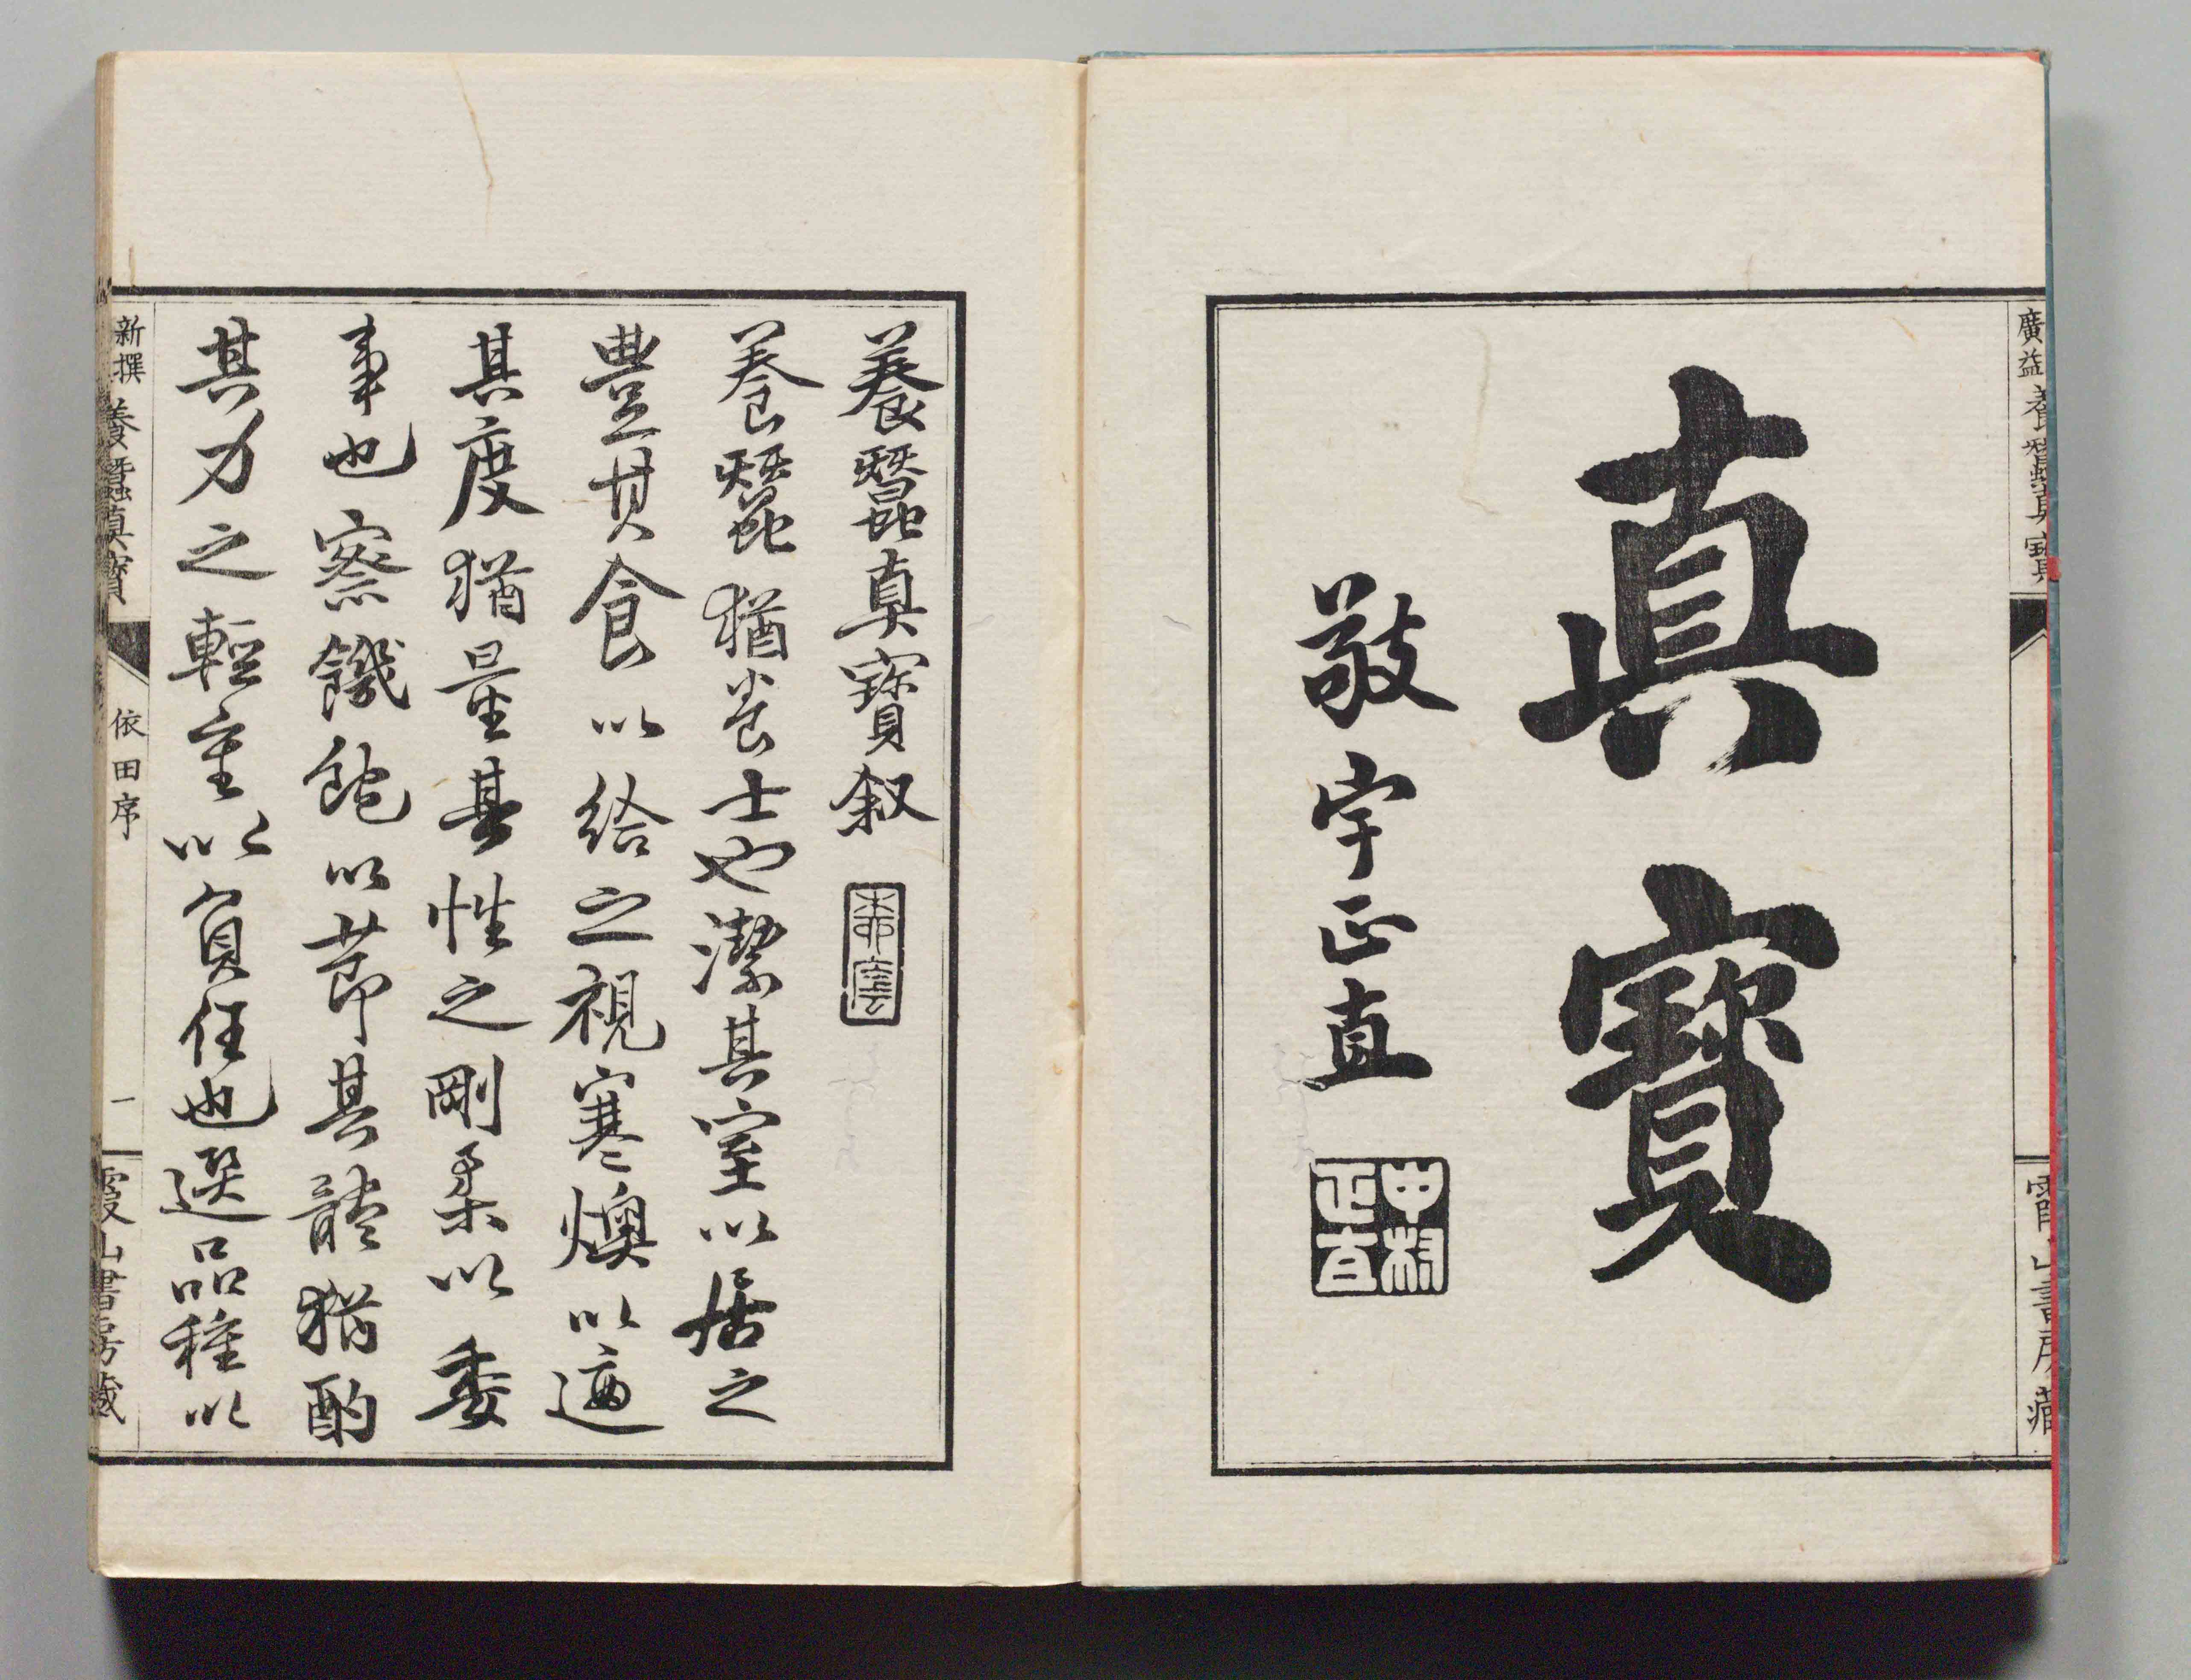 廣益 養蠶真寳
霞山書房藏
真寳
敬宇正直
中村正直
養蠶真寳叙
養蠶猶养士也潔其室以居之
豊其食以給之視寒燠以適
其度猶量其性之剛柔以委
事也察饑飽以節其體猶酌
其力之輕重以負任也選品種以
新撰 養蠶真寳
依田序
一
霞山書房藏